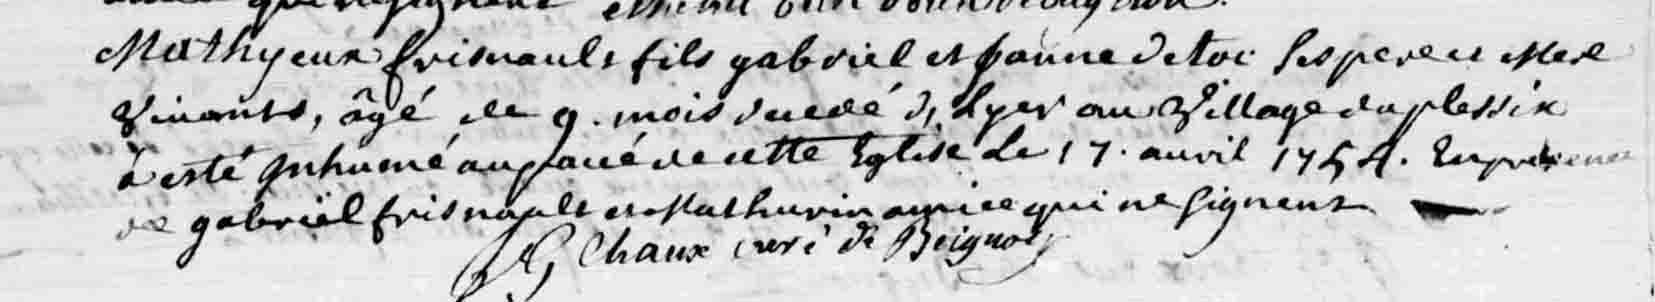 Mathyeux frisnault fils gabriel et jeanne detoc ses pere et mere
vivants, âgé de 9. mois decedé d'hyer au village du plessix
à esté inhumé au pavé de cette Eglise Le 17. auvril 1754. En presence
de gabriël frisnault et Mathurin amice qui ne signent
Chaux curé de Beignon